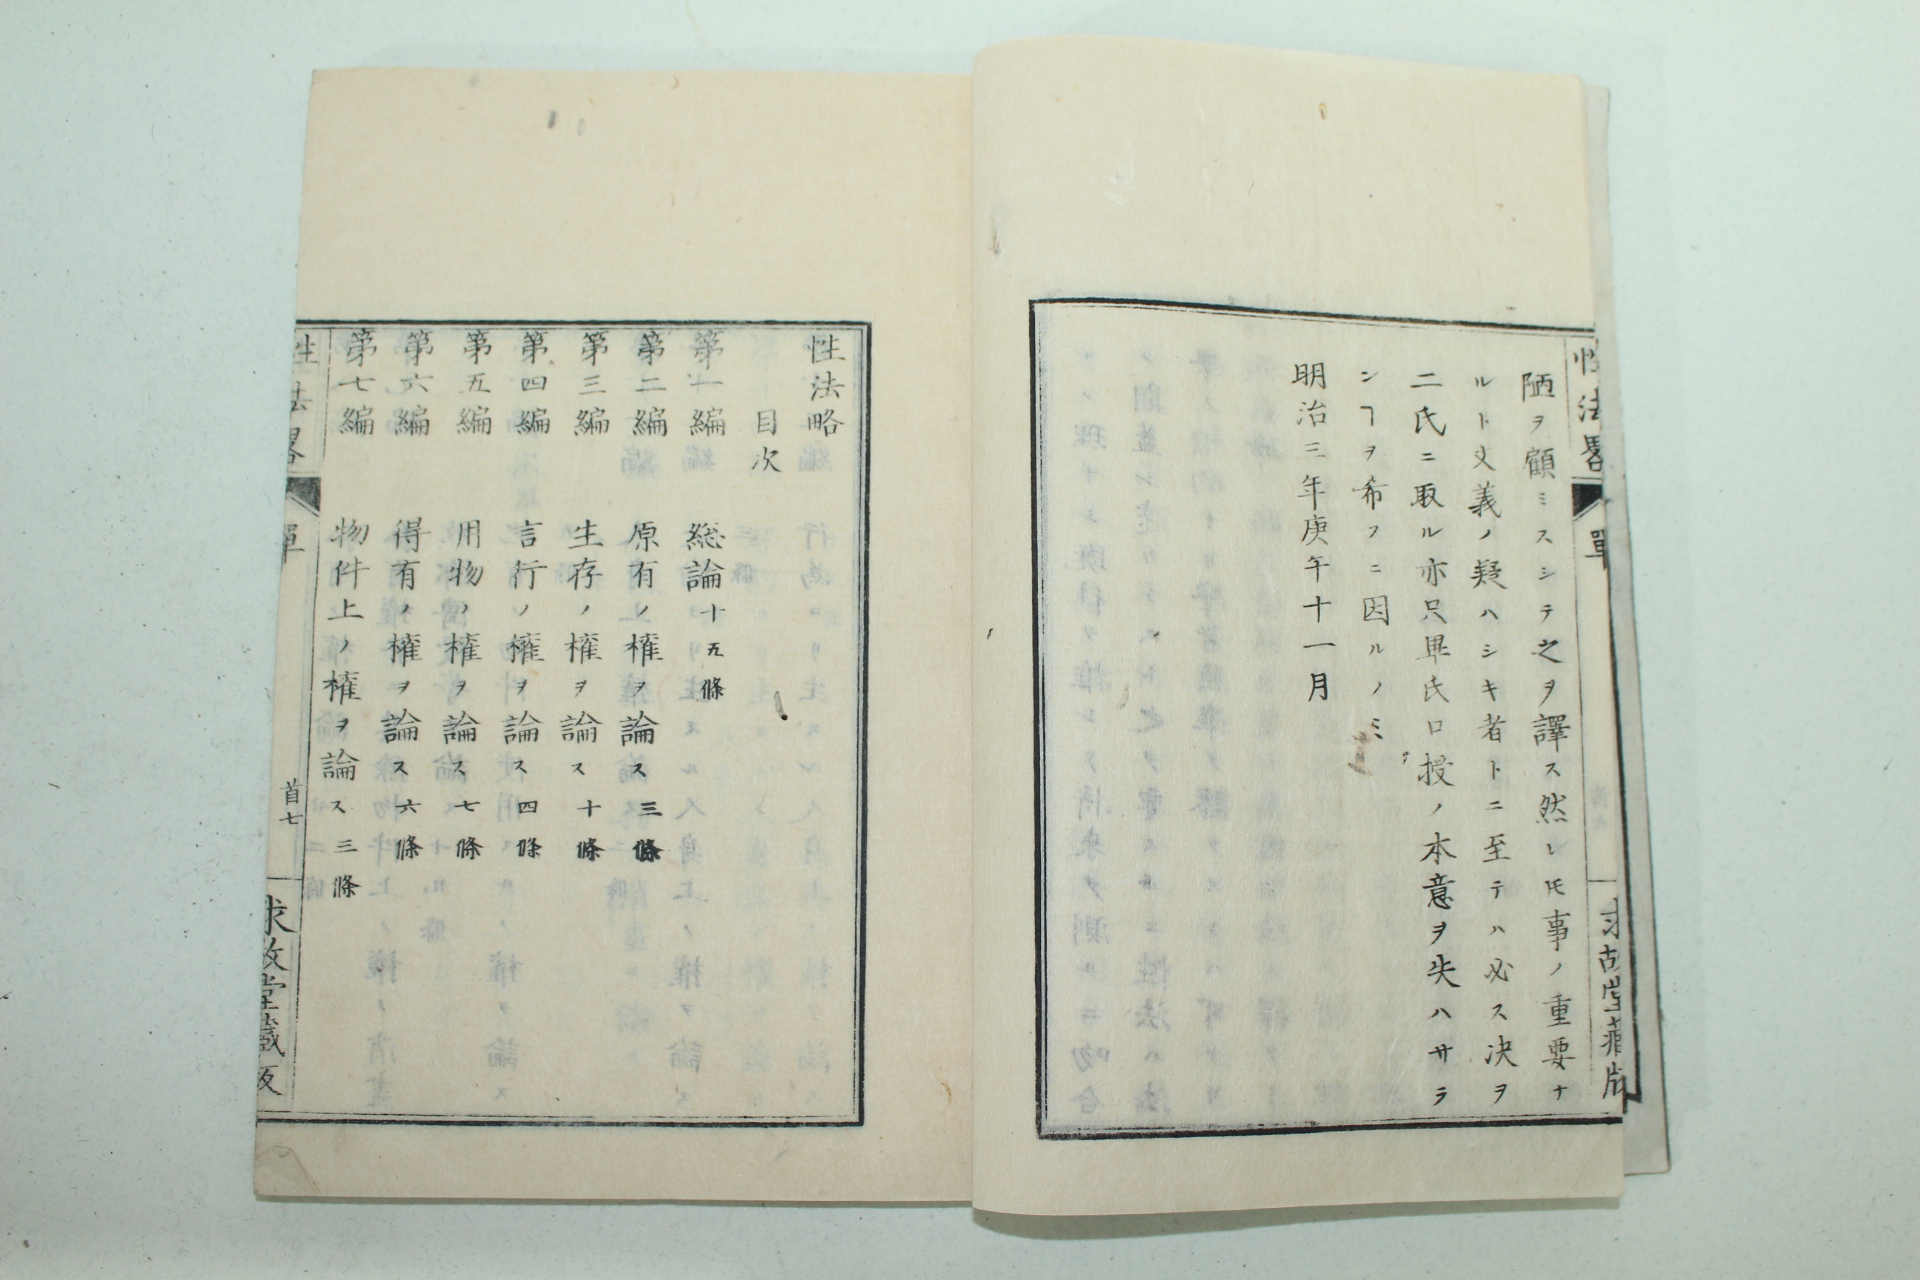 性法畧
單
求故堂藏版
陋ヲ顧ミスシテ之ヲ譯ス然レ𪜈事ノ重要ナ
ルト文義ノ疑ハシキ者トニ至テハ必ス決ヲ
二氏ニ取ル亦只畢氏口授ノ本意ヲ失ハサラ
ンヿヲ希フニ因ルノミ
明治三年庚午十一月
性法略
目次
第一編 総論十五條
第二編 原有ノ權ヲ論ス三條
第三編 生存ノ權ヲ論ス十條
第四編 言行ノ權ヲ論ス四條
第五編 用物ノ權ヲ論ス七條
第六編 得有ノ權ヲ論ス六條
第七編 物件上ノ權ヲ論ス三條
性法畧
單
首七
求故堂藏版